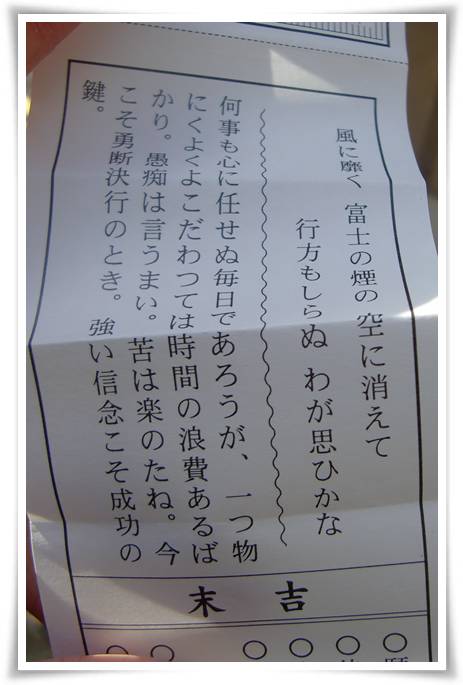 風に靡く 富士の煙の 空に消えて
行方もしらぬ わが思ひかな
何事も心に任せぬ毎日であろうが、一つ物
にくよくよこだわつては時間の浪費あるば
かり。愚痴は言うまい。苦は楽のたね。今
こそ勇断決行のとき。強い信念こそ成功の
鍵。
末 吉